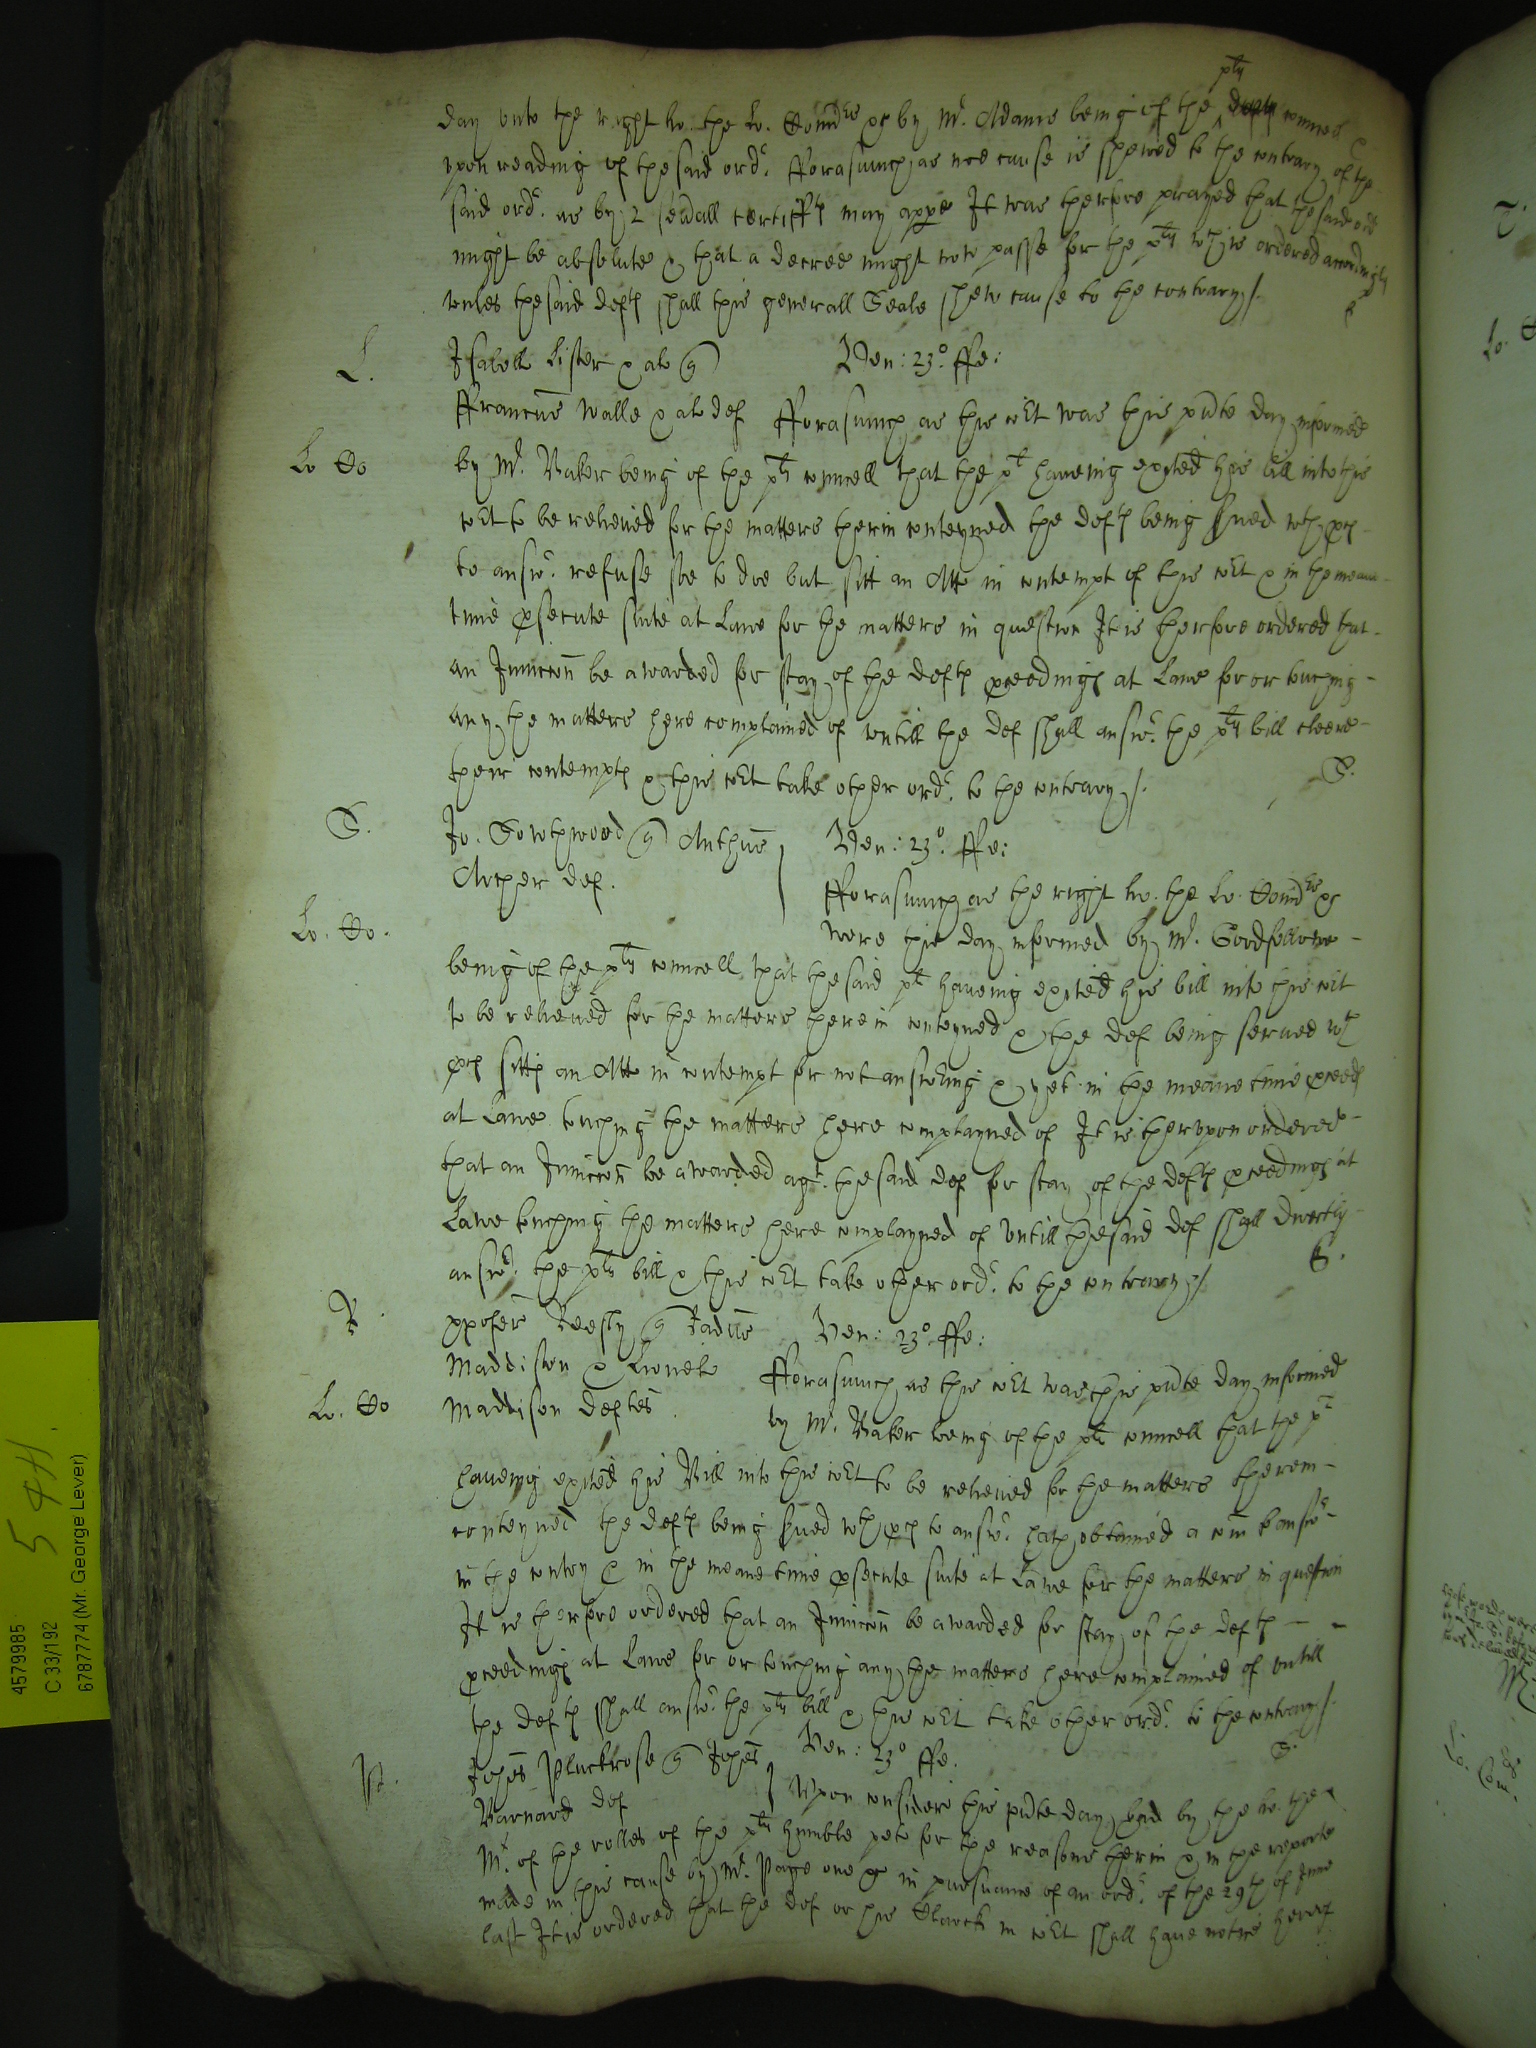 plts
day unto the right ho. the Lo. Comrs &c by Mr. Adams being of the defts councel
upon reading of the said ordr. fforasmuch as noe cause is shewed to the contrary of the
said ordr. as by 2 sevall certiffts may appe It was therfore prayed that the said ordr
might be absolute & that a decree might now passe for the plts wch is ordered accordingly
unles the said defts shall this generall Seale shew cause to the contrary /.
L. Isabell Lister & al q Ven: 23o. ffe:
ffrancus Walle & al def fforasmuch as this Cort was this psnte day informed
Lo Co by Mr. Baker being of the plts councell that the plt haveing exited his bill into this
cort to be relieved for the matters therin conteyned the defts being sued wth pces
to answr. refuse soe to doe but sitt an Atta in contempt of this cort & in the meane
time psecute suite at Lawe for the matters in question It is therfore ordered that
an Iniuccon be awarded for stay of the defts pceedings at Lawe for or touching
any the matters here complained of untill the def shall answr. the plts bill cleere
their contempts & this cort take other ordr. to the contrary /. S.
S. Jo. Sowthwood q Anthus Ven: 23o. ffe:
Archer def.
fforasmuch as the right ho. the Lo. Comrs &c
Lo. Co. were this day informed by Mr. Goodfellowe
being of the plts councell that the said plt haveing exited his bill into this cort
to be relieved for the matters therein conteyned & the def being served wth
pces sitts an Atta in contempt for not answering & yet in the meane time pceeds
at Lawe touching the matters here complayned of It is therupon ordered
that an Iniuccon be awarded agt. the said def for stay of the defts pceedings at
Lawe touching the matters here complayned of untill the said def shall directly
answr. the plts bill & this cort take other ordr. to the contrary /. S.
R xpofer Reesly q Radus Ven: 23o. ffe:
Maddison & Lionell fforasmuch as this cort was this psnte day informed
Lo. Co Maddison deftes. by Mr. Baker being of the plts councell that the plt
haveing exited his Bill into this cort to be relieved for the matters therein
conteyned the defts being sued wth pces to answr. hath obtained a com to answr
in the contry & in the meane time psecute suite at Lawe for the matters in question
It is therfore ordered that an Iniuccon be awarded for stay of the defts
pceedings at Lawe for or touching any the matters here complained of untill
the defts shall answr. the plts bill & this cort take other ordr. to the contrary /. S.
P. Johes Pluckrose q Johes Ven: 23o ffe.
Barnard def Upon consideracon this psnte day had by the ho. the
Mr. of the rolles of the plts humble peto for the reasons therin & in the reporte
made in this cause by Mr. Page one &c in pursuance of an ordr. of the 29th of June
last It is ordered that the def or his Clarck in cort shall have notice hereof
4579985
C 33/192
6787774 (Mr. George Lever)
Lo. Com.